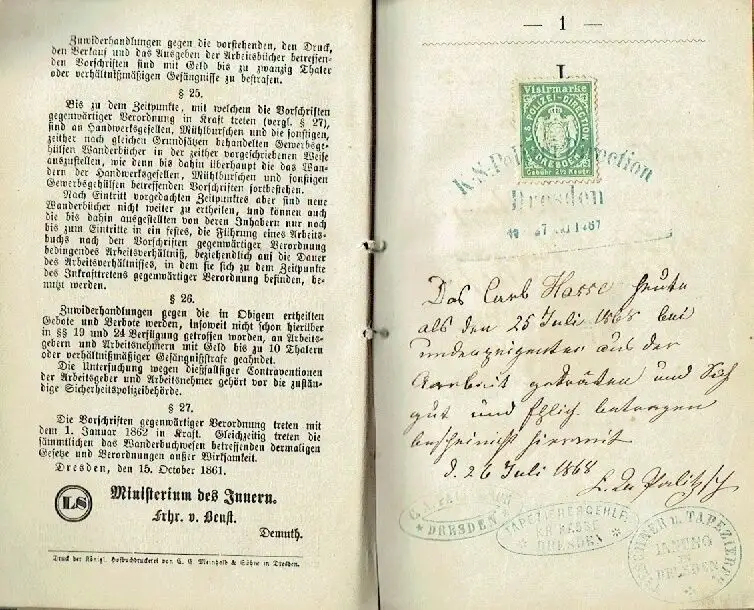 Zuwiderhandlungen gegen die vorstehenden, den Druck,
den Verkauf und das Ausgeben der Arbeitsbücher betreffen-
den Vorschriften sind mit Geld bis zu zwanzig Thaler
oder verhältnißmäßigen Gefängnisse zu bestrafen.
§ 25.
Bis zu dem Zeitpunkte, mit welchem die Vorschriften
gegenwärtiger Verordnung in Kraft treten (vergl. § 27),
sind an Handwerksgesellen, Mühlburschen und die sonstigen,
zeither nach gleichen Grundsätzen behandelten Gewerbsge-
hülfen Wanderbücher in der zeither vorgeschriebenen Weise
auszustellen, wie denn bis dahin überhaupt die das Wan-
dern der Handwerksgesellen, Mühlburschen und sonstigen
Gewerbsgehülfen betreffenden Vorschriften fortbestehen.
Nach Eintritt vorgedachten Zeitpunktes aber sind neue
Wanderbücher nicht weiter zu ertheilen, und können auch
die bis dahin ausgestellten von deren Inhabern nur noch
bis zum Eintritte in ein festes, die Führung eines Arbeits-
buchs nach den Vorschriften gegenwärtiger Verordnung
bedingendes Arbeitsverhältniß, beziehentlich auf die Dauer
des Arbeitsverhältnisses, in dem sie sich zu dem Zeitpunkte
des Inkrafttretens gegenwärtiger Verordnung befinden, be-
nutzt werden.
§ 26.
Zuwiderhandlungen gegen die in Obigem ertheilten
Gebote und Verbote werden, insoweit nicht schon hierüber
in §§ 19 und 24 Verfügung getroffen worden, an Arbeit-
gebern und Arbeitnehmern mit Geld bis zu 10 Thalern
oder verhältnißmäßiger Gefängnißstrafe geahndet.
Die Untersuchung wegen dießfallsiger Contraventionen
der Arbeitgeber und Arbeitnehmer gehört vor die zustän-
dige Sicherheitspolizeibehörde.
§ 27.
Die Vorschriften gegenwärtiger Verordnung treten mit
dem 1. Januar 1862 in Kraft. Gleichzeitig treten die
sämmtlichen das Wanderbuchwesen betreffenden dermaligen
Gesetze und Verordnungen außer Wirksamkeit.
Dresden, den 15. October 1861.
LS
Ministerium des Innern.
Frhr. v. Beust.
Demuth.
Druck der Königl. Hofbuchdruckerei von C. C. Meinhold & Söhne in Dresden.
— 1 —
I.
Visirmarke
K. S. POLIZEI-DIRECTION
DRESDEN
Gebühr 2½ Neugr.
K. S. Polizei-Direction
Dresden
Das Carl Hasse heute
als den 25 Juli 1868 bei
aus der
Aarbeit geträten und Sich
gut und Ehlich betragen
bescheinigt hiermit
d. 26 Juli 1868
DRESDEN
TAPEZIERERGEHILF.
KR. KASSE
DRESDEN
TAPEZIERER
INNUNG
DRESDEN